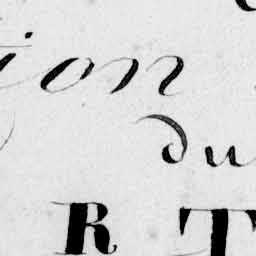 ion
du
R T